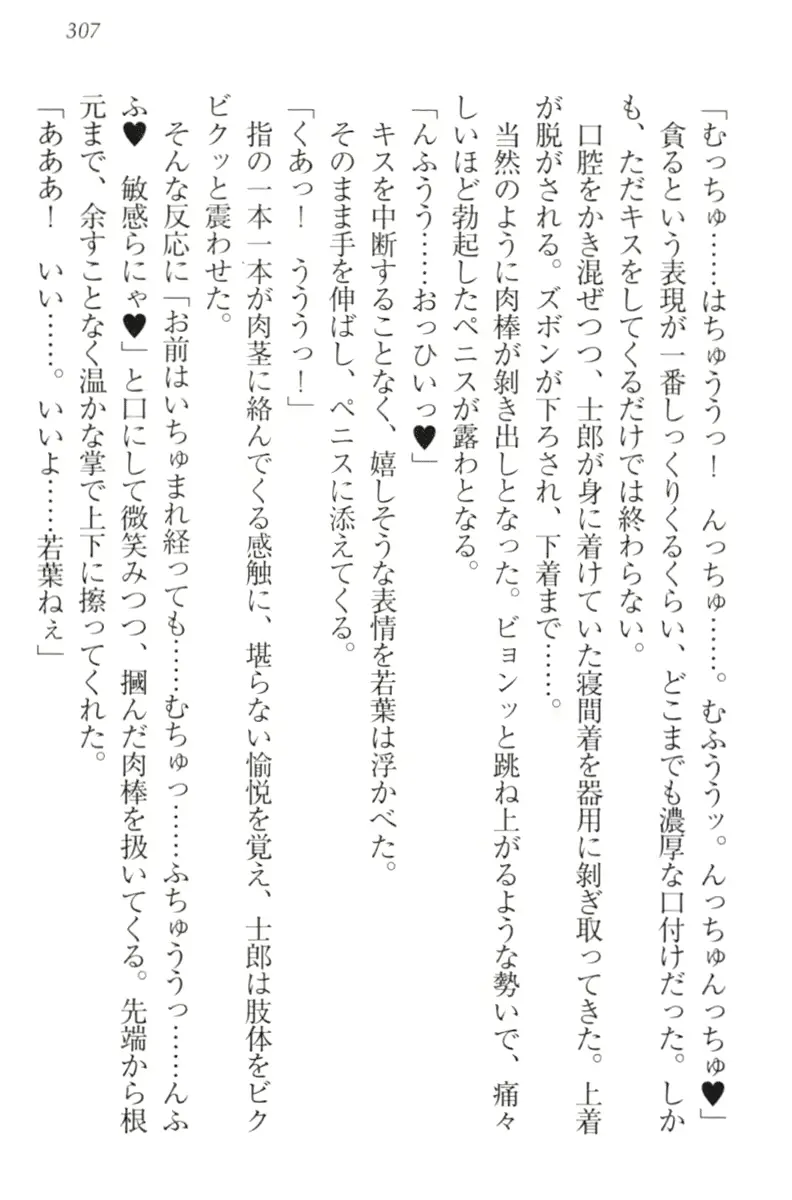 307
「むっちゅ……はちゅううっ！　んっちゅ……。むふううッ。んっちゅんっちゅ♥」
　貪るという表現が一番しっくりくるくらい、どこまでも濃厚な口付けだった。しか
も、ただキスをしてくるだけでは終わらない。
　口腔をかき混ぜつつ、士郎が身に着けていた寝間着を器用に剥ぎ取ってきた。上着
が脱がされる。ズボンが下ろされ、下着まで……。
　当然のように肉棒が剥き出しとなった。ビョンッと跳ね上がるような勢いで、痛々
しいほど勃起したペニスが露わとなる。
「んふうう……おっひいっ♥」
　キスを中断することなく、嬉しそうな表情を若葉は浮かべた。
　そのまま手を伸ばし、ペニスに添えてくる。
「くあっ！　うううっ！」
　指の一本一本が肉茎に絡んでくる感触に、堪らない愉悦を覚え、士郎は肢体をビク
ビクッと震わせた。
　そんな反応に「お前はいちゅまれ経っても……むちゅっ……ふちゅううっ……んふ
ふ♥　敏感らにゃ♥」と口にして微笑みつつ、摑んだ肉棒を扱いてくる。先端から根
元まで、余すことなく温かな掌で上下に擦ってくれた。
「あああ！　いい……。いいよ……若葉ねぇ」